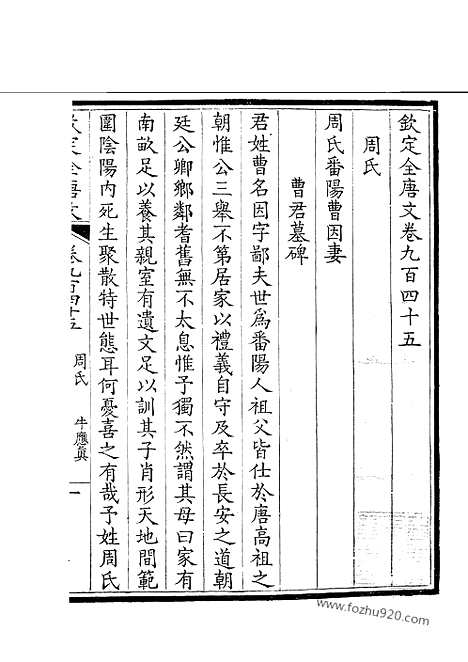 欽定全唐文卷九百四十五
周氏
周氏番陽曹因妻
曹君墓碑
君姓曹名因字鄙夫世爲番陽人祖父皆仕於唐高祖之
朝惟公三舉不第居家以禮義自守及卒於長安之道朝
廷公卿鄉鄰耆舊無不太息惟予獨不然謂其母曰家有
南畝足以養其親室有遺文足以訓其子肖形天地間範
圍陰陽內死生聚散特世態耳何憂喜之有哉予姓周氏
欽定全唐文 卷九百四十五 周氏 牛應真 一
www.fozhu920.com